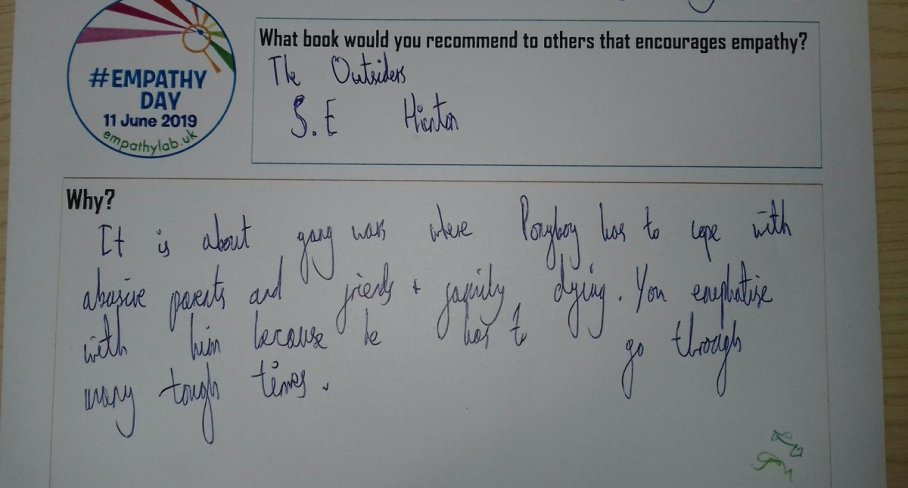 #EMPATHY
DAY
11 June 2019
empathylab.uk
What book would you recommend to others that encourages empathy?
The Outsiders
S.E Hinton
Why?
It is about gang wars where Ponyboy has to cope with
abusive parents and friends + family dying. You emphatise
with him because he has to go through
many tough times.